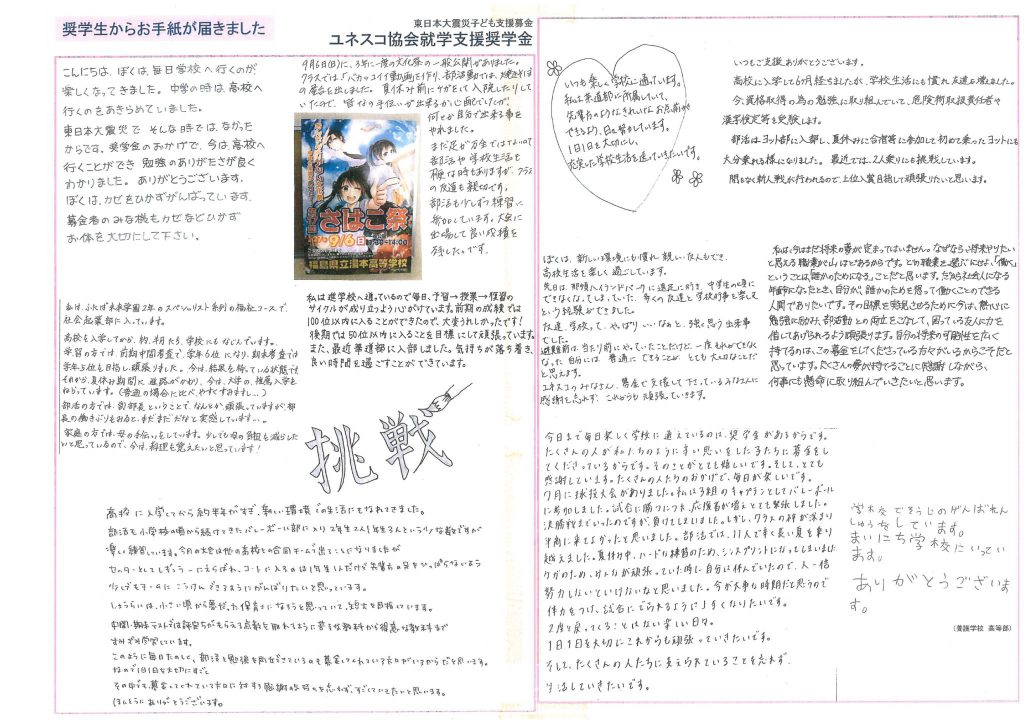 奨学生からお手紙が届きました
東日本大震災子ども支援募金
ユネスコ協会就学支援奨学金
こんにちは、ぼくは、毎日学校へ行くのが
楽しくなってきました。中学の時は、高校へ
行くのをあきらめていました。
東日本大震災で そんな時では、なかった
からです。奨学金のおかげで、今は、高校へ
行くことができ 勉強のありがたさが良く
わかりました。ありがとうございます。
ぼくは、カゼをひかずがんばっています。
募金者のみな様もカゼなどひかず
お体を大切にして下さい。
9月6日(日)に、3年に一度の文化祭の一般公開がありました。
クラスでは「バカッコイイ動画」を作り、部活動では、
の展示を出しました。夏休み前にケガをして入院したりして
いたので、皆なの手伝いが出来るか心配でしたが、
何とか自分で出来る事を
やれました。
まだ足が万全ではないので
部活や学校生活も
大変な時もありますが、クラス
の友達も親切です。
部活も少しずつ練習に
参加しています。大会に
出場して良い成績を
残したいです。
さはこ祭
9/6日
福島県立湯本高等学校
私は、ふたば未来学園2年のスペシャリスト系列の福祉コースで、
社会起業部に入っています。
高校も入学してから、約1ヶ月たち、学校にもなじんでいます。
学習の方では、前期中間考査で、学年6位になり、期末考査では
学年5位も目指し、頑張りました。今は、結果を待っている状態です。
それから、夏休み期間に進路がかわり、今は、大学の、推薦入学を
ねらっています。(普通の場合に比べ、やすすぎますし…)
部活の方では、副部長ということで、なんとか、頑張っていますが、部
長の働きぶりをみると、まだまだだなと実感しています…。
家庭の方では、母の手伝いをしています。少しでも母の負担も減らした
いと思っているので、今は、料理も覚えたいと思っています!
私は進学校へ通っているので毎日、予習→授業→復習の
サイクルが成り立つよう心がけています。前期の成績では
100位以内に入ることができたので、大変うれしかったです!
後期では50位以内に入ることを目標にして頑張っています。
また、最近華道部に入部しました。気持ちが落ち着き、
良い時間を過ごすことができています。
挑戦
高校に入学してから約半年がすぎ、新しい環境での生活にもなれてきました。
部活も小学校の頃から続けてきたバレーボール部に入り2年生2人1年生3人という少ない人数ですが
楽しく練習しています。今月の大会は他の高校との合同チームで出ることになりましたが
セッターとしてレギュラーにえらばれ、コートに入るのは1年生1人だけど先輩たちの足をひっぱらないよう
少しでもチームにこうけんできるようにがんばりたいと思っています。
しょうらいは、小さい頃から夢だった保育士になろうと思っていて、短大を目指しています。
中間・期末テストでは評定ちがもらえる点数を取れるように苦手な教科から得意な教科まで
すみずみ学習しています。
このように毎日たのしく、部活と勉強を両立できているのも募金してくれている方々がいるからだと思います。
なので1日1日を大切にすごし
その中でも募金してくれている方々に対する感謝の気持ちを忘れず、すごしていきたいと思います。
ほんとうにありがとうございます。
いつも楽しく学校に通っています。
私は茶道部に所属していて、
先輩方のようなきれいなお点前が
できるよう、日々努めています。
1日1日を大切にし、
充実した学校生活を送っていきたいです。
いつもご支援ありがとうございます。
高校に入学して6ヶ月経ちましたが、学校生活にも慣れ友達も増えました。
今、資格取得の為の勉強に取り組んでいて、危険物取扱責任者や
漢字検定等を受験します。
部活はヨット部に入部し、夏休みに合宿等に参加して初めて乗ったヨットにも
大分乗れる様になりました。最近では、2人乗りにも挑戦しています。
間もなく新人戦が行われるので、上位入賞目指して頑張りたいと思います。
ぼくは、新しい環境にも慣れ、親しい友人もでき、
高校生活を楽しく過ごしています。
先日は、那須ハイランドパークに遠足に行き、中学生の時に
できなくなってしまっていた、多くの友達と学校行事を楽しむ
という経験ができました。
友達、学校って、やっぱりいいなぁと、強く思う出来事
でした。
避難前は、当たり前にやっていたことだけど、一度それができなく
なった自分には、普通にできることが、とても大切なことだ
と思えます。
ユネスコのみなさん、募金で支援して下さっているみなさんに
感謝を忘れず、これからも頑張っていきます。
私は、今はまだ将来の夢が定まってはいません。なぜなら、将来やりたい
と思える職業が山ほどあるからです。どの職業を選ぶにせよ、「働く」
ということは、「誰かのためになる」ことだと思います。だから、社会人になる
年齢になったとき、自分が、誰かのためを想って働くことのできる
人間でありたいです。その目標を実現させるために今は、熱心に
勉強に励み、部活動との両立をこなして、困っている友人に力を
貸してあげられるよう頑張ります。自分の将来の可能性を広く
持てるのは、この募金をしてくださっている方々がいるからこそだと
思っています。たくさんの夢が持てることに感謝しながら、
何事にも懸命に取り組んでいきたいと思います。
今日まで毎日楽しく学校に通えているのは、奨学金があるからです。
たくさんの人が私たちのように辛い思いをした子たちに募金をし
てくださっているからです。そのことがとても嬉しいです。そして、とても
感謝しています。たくさんの人たちのおかげで、毎日が楽しいです。
7月に球技大会がありました。私は3組のキャプテンとしてバレーボール
に参加しました。試合に勝つにつれ、応援者が増えとても緊張しました。
決勝戦までいったのですが、負けてしまいました。しかし、クラスの絆が深まり
本当に楽しかったと思いました。部活では、11人で辛く長い夏を乗り
越えました。夏休み中、ハードな練習のため、シンスプリントになってしまいました。
ケガのため、みんなが頑張っていた時に自分は休んでいたので、人一倍
努力しないといけないなと思いました。今が大事な時期だと思うので
体力をつけ、試合にでられるように上手くなりたいです。
2度と戻ってくることはない楽しい日々。
1日1日を大切にこれからも頑張っていきたいです。
そして、たくさんの人たちに支えられていることを忘れず、
生活していきたいです。
学校で そうじのげんばれん
しゅうをしています。
まいにち学校にいってい
ます。
ありがとうございま
す。
(養護学校 高等部)